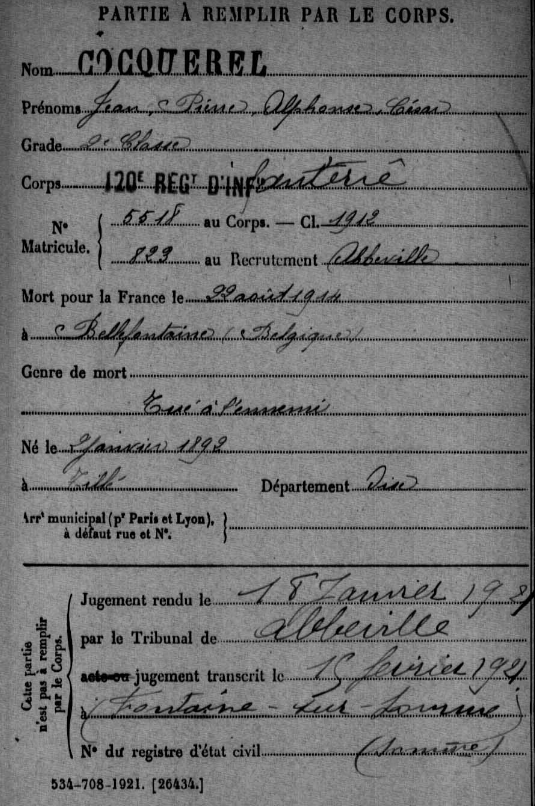 PARTIE À REMPLIR PAR LE CORPS.
Nom COCQUEREL
Prénoms Jean, Pierre, Alphonse, César
Grade 2e Classe
Corps 120E REGT D'INFanterie
No Matricule. { 5518 au Corps. — Cl. 1912
823 au Recrutement Abbeville
Mort pour la France le 22 août 1914
à Bellefontaine (Belgique)
Genre de mort
Tué à l'ennemi
Né le janvier 1892
à Tillé Département Oise
Arrt municipal (pr Paris et Lyon),
à défaut rue et No.
Cette partie n'est pas à remplir par le Corps.
Jugement rendu le 18 Janvier 1921
par le Tribunal de Abbeville
acte ou jugement transcrit le 15 février 1921
à Fontaine-sur-Somme
No du registre d'état civil (Somme)
534-708-1921. [26434.]